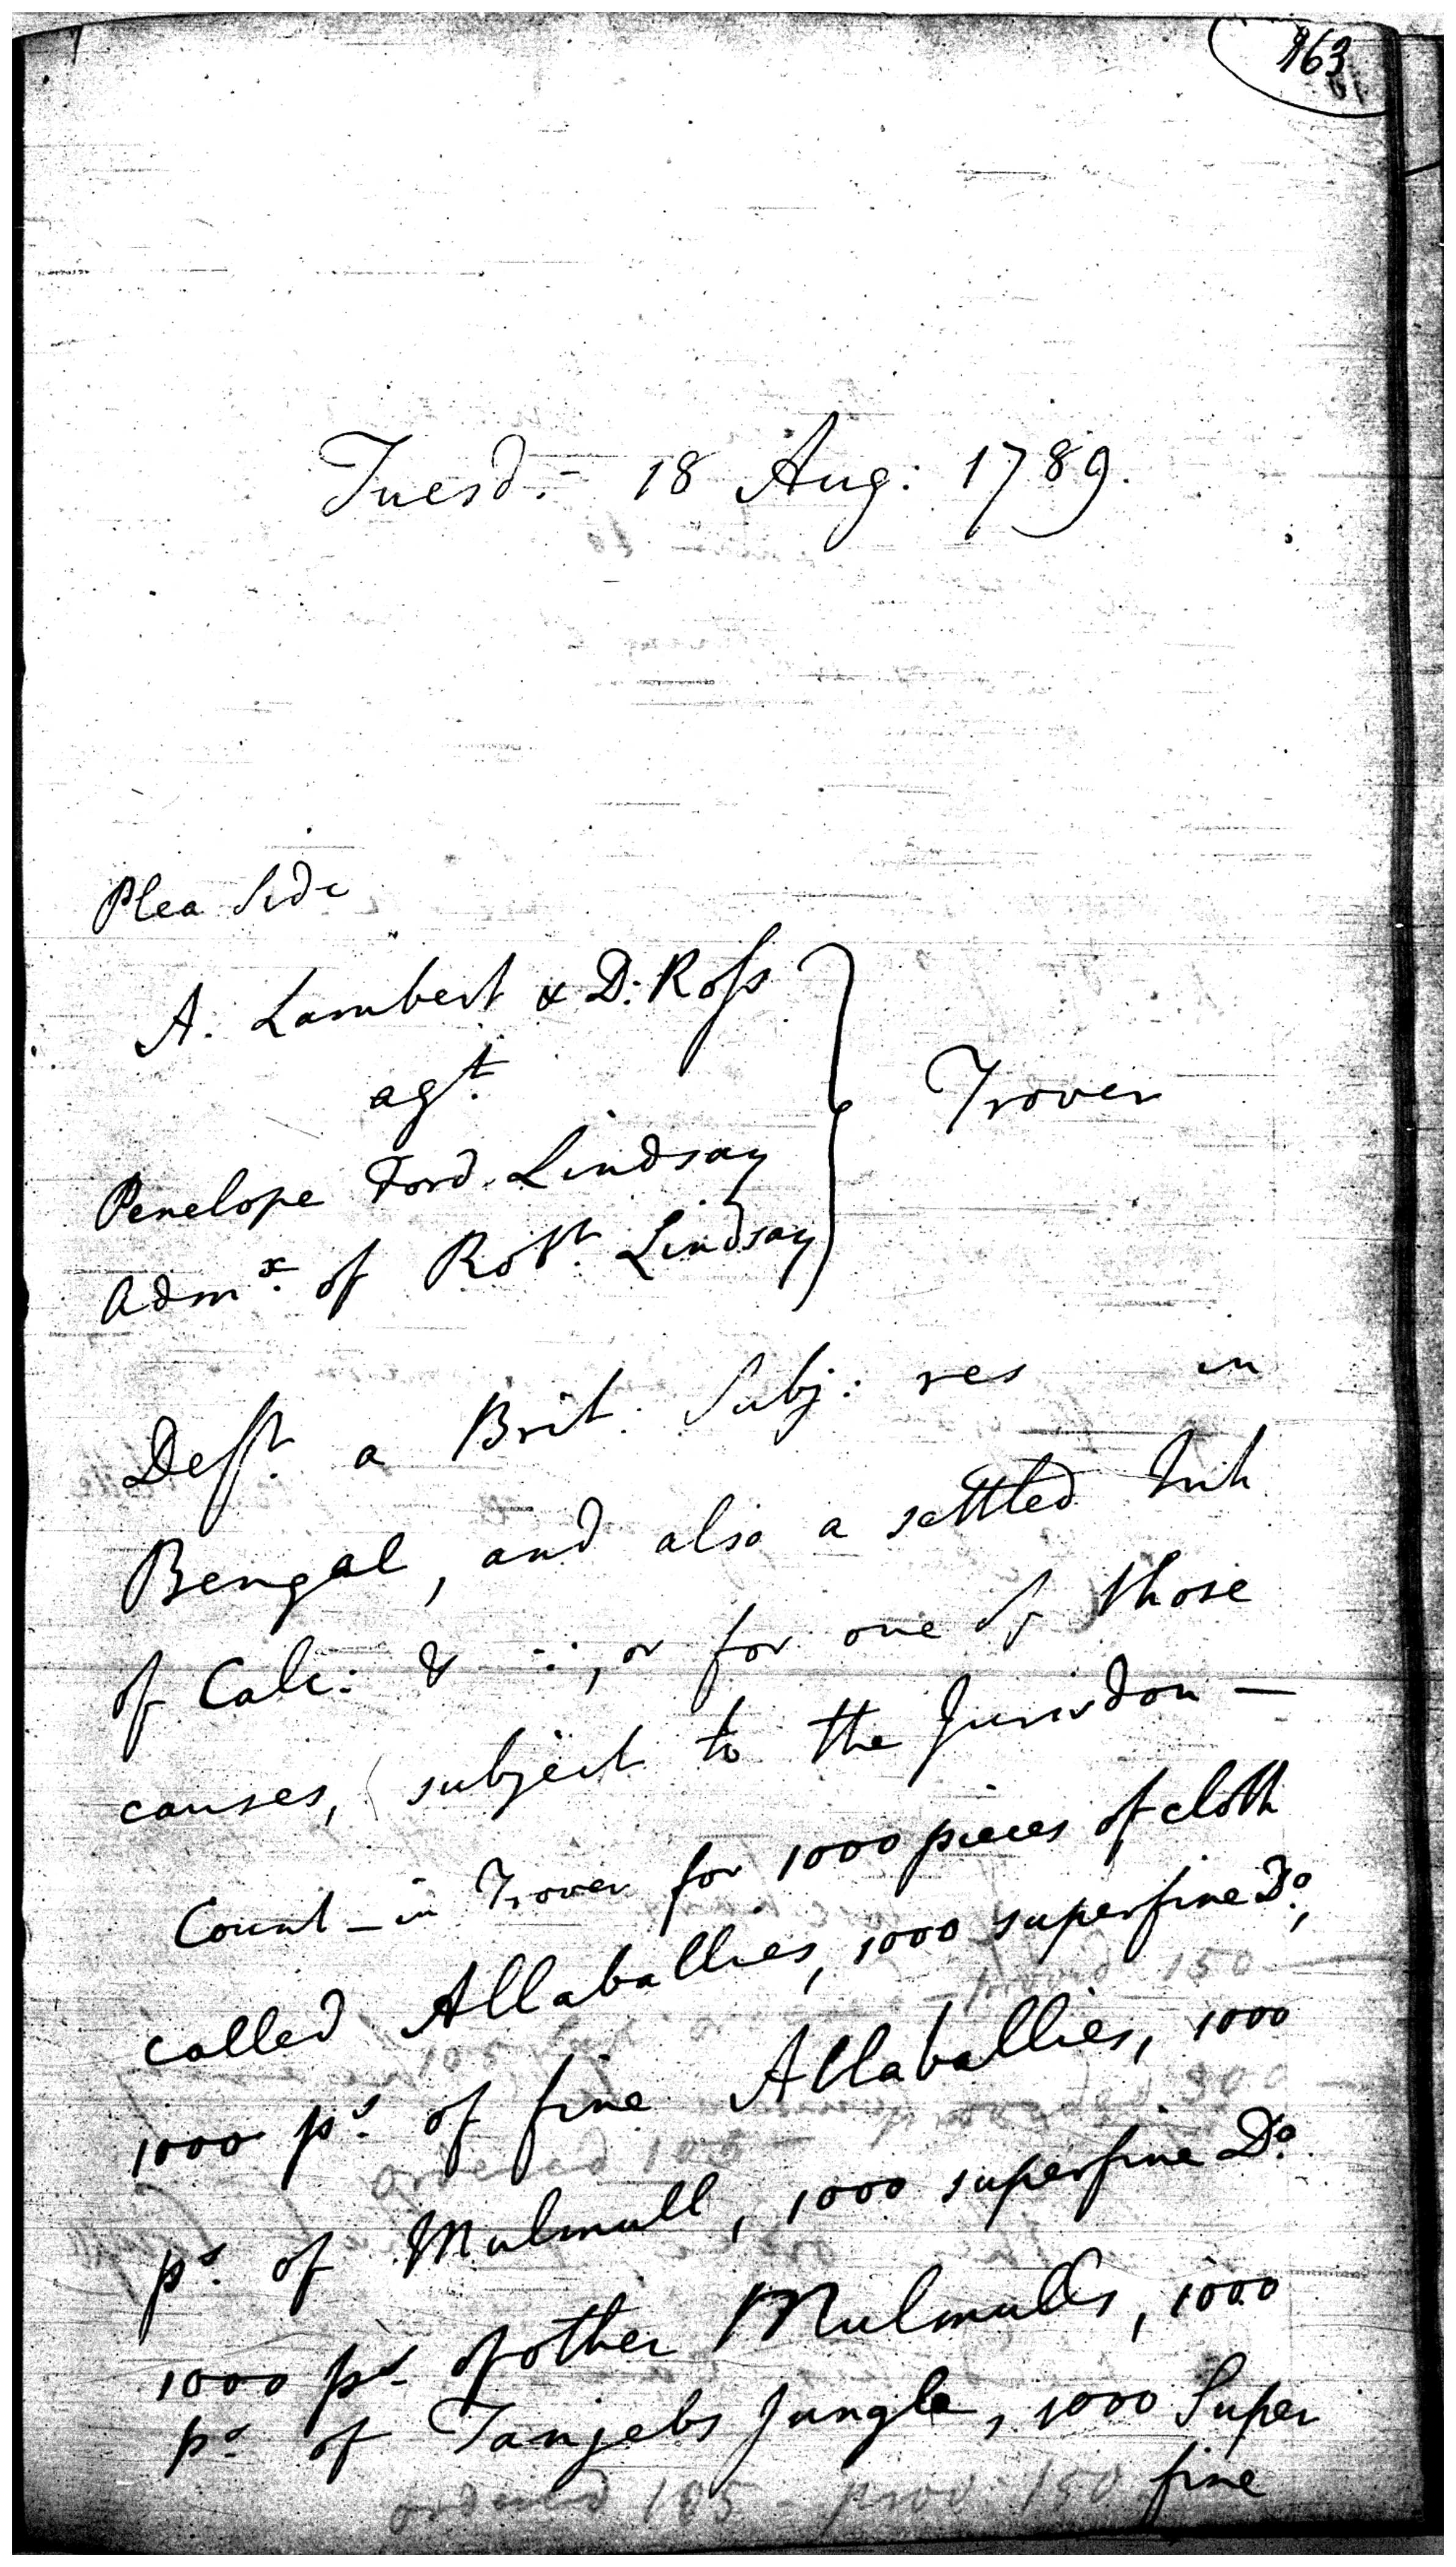 163
Tuesd: 18 Aug: 1789.
Plea Side
A. Lambert & D: Ross
agt.
Trover
Penelope Ford Lindsay
Admx. of Robt. Lindsay
Deft. a Brit. Subj: res in
Bengal, and also a settled Inh
of Calc: & : , or for one of those
causes, subject to the Jurisdon —
Count — in Trover for 1000 pieces of cloth
called Allaballies, 1000 superfine Do,
1000 ps. of fine Allaballies, 1000
ps. of Mulmull, 1000 superfine Do.
1000 ps. of other Mulmulls, 1000
ps. of Tanjebs Jungle, 1000 Super
fine
ordered 105
ordered 105 - prov. 150